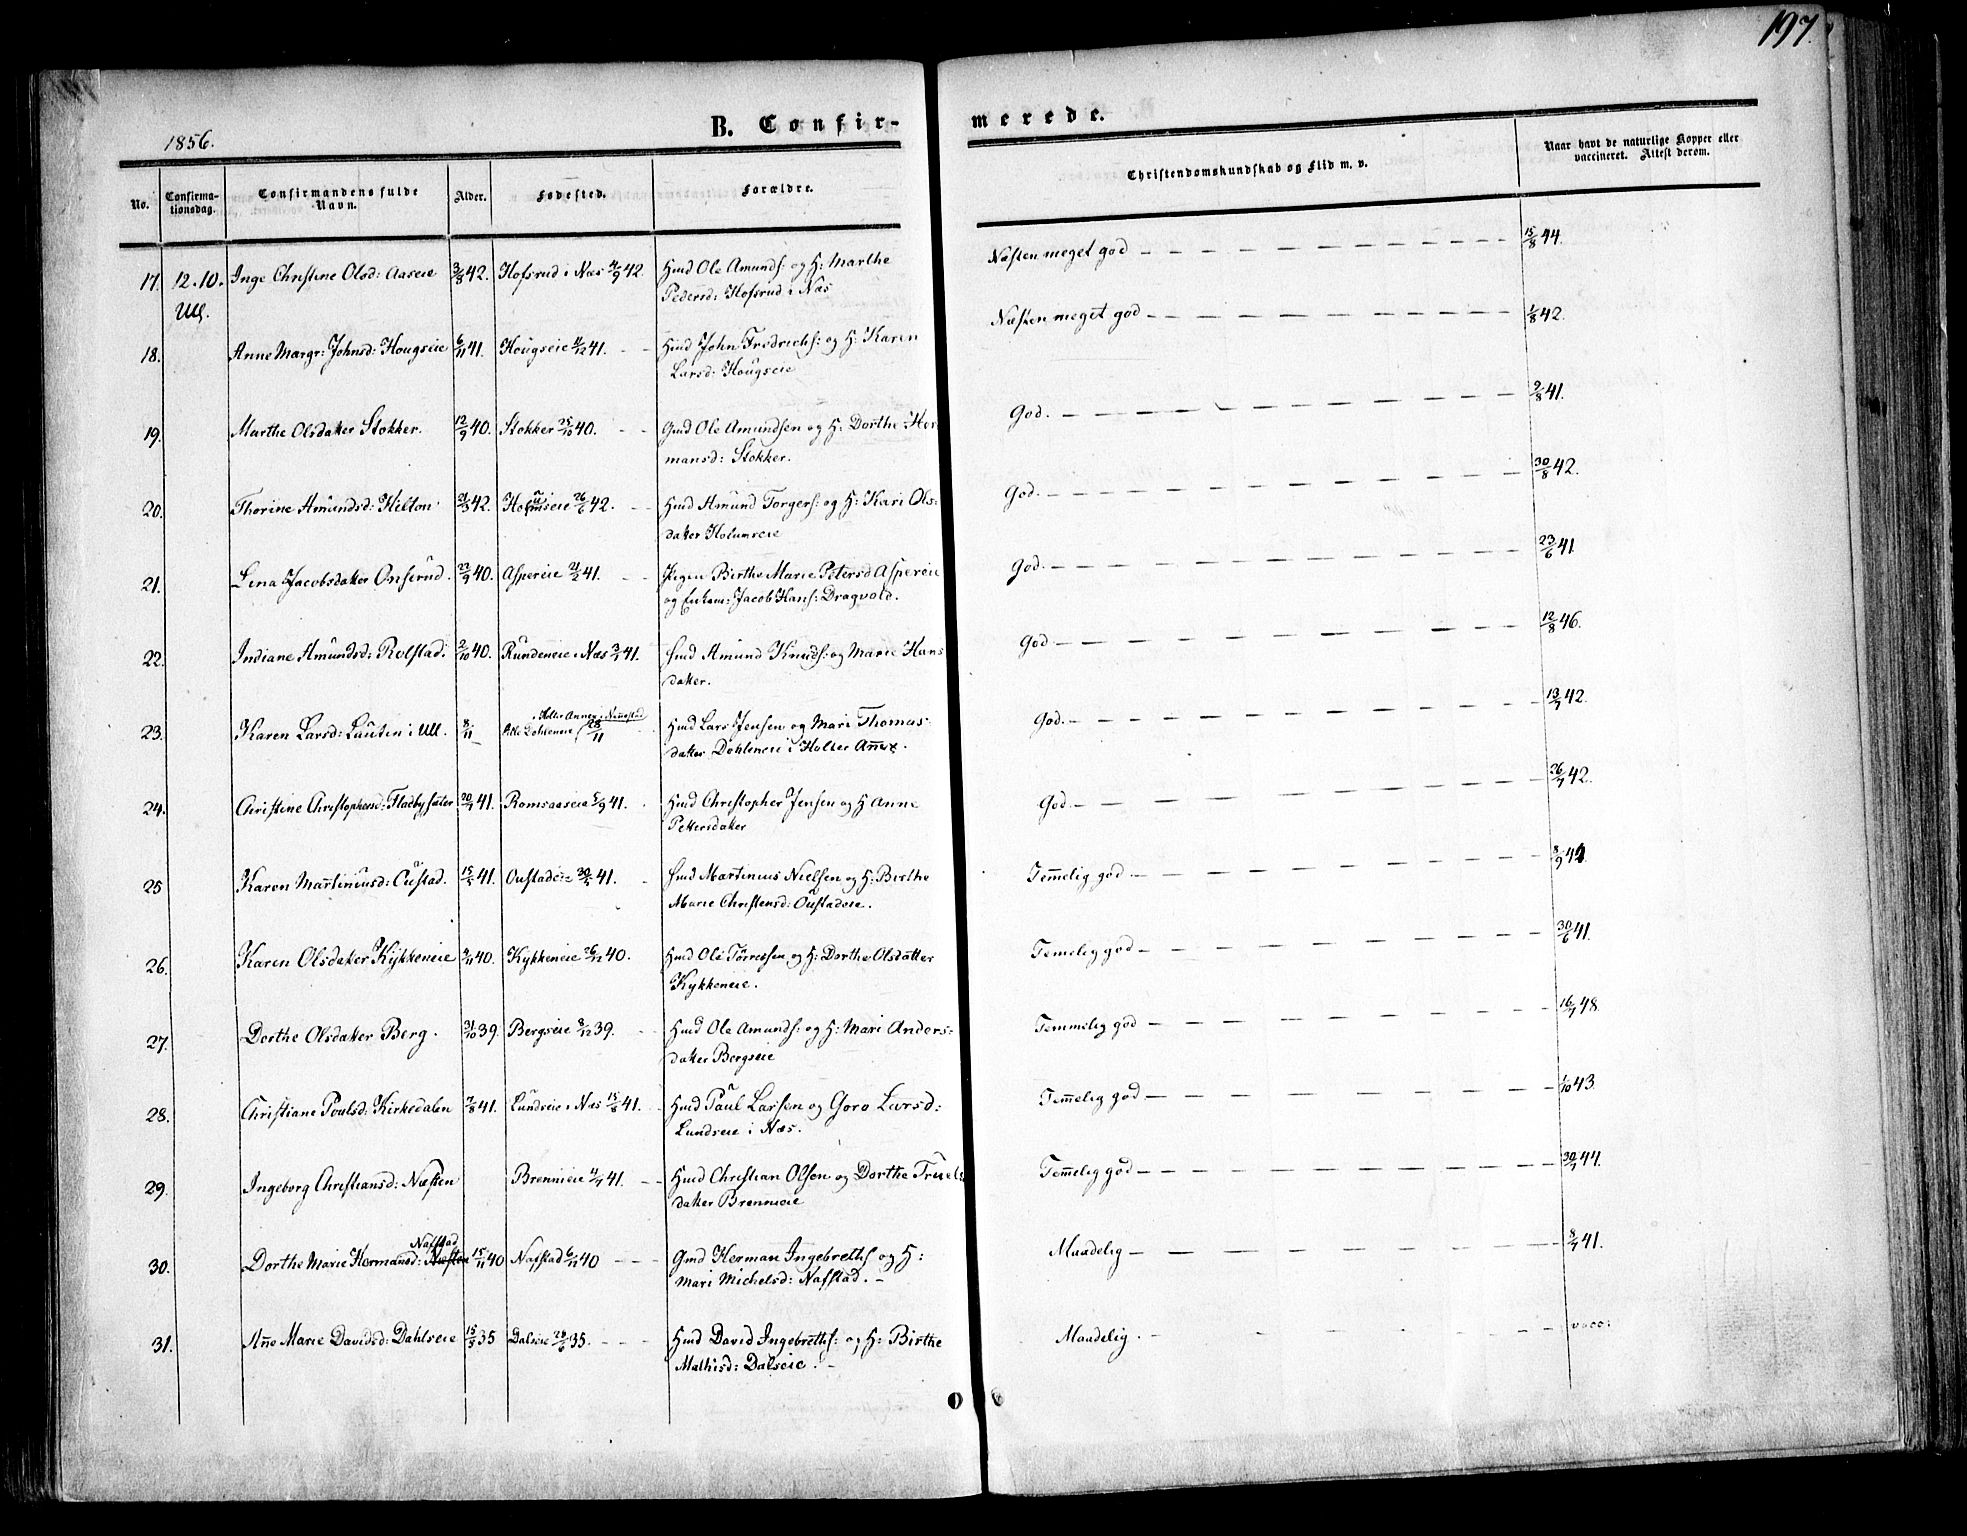 197.
1856.
B. Confirmerede.
No. Confirmationsdag. Confirmandens fulde Navn. Alder. Fødested. Forældre. Christendomskundskab og Flid m. v. Naar havt de naturlige Kopper eller vaccineret. Attest derom.
17. 12.10. Inge Christine Olsd: Aaseie 3/8 42. Hofsrud i Næs 4/9 42 Hmd Ole Amunds: og H: Marthe Næsten meget god 15/8 44.
Ull. Pedersd: Hofsrud i Næs
18. Anne Margr: Johnsd: Hougseie 6/11 41. Hougseie 4/12 41. Hmd John Fredrichs: og H: Karen Næsten meget god 1/8 42.
Larsd: Hougseie
19. Marthe Olsdatter Stokker. 12/9 40. Stokker 25/10 40. Gmd Ole Amundsen og H: Dorthe Her God. 9/8 41.
mansd: Stokker.
20. Thorine Amundsd: Hilton 21/5 42. Holumseie 26/6 42. Hmd Amund Torgers: og H: Kari Ols: God. 30/8 42.
datter Holumseie
21. Lina Jacobsdatter Onserud. 27/9 40. Aspereie 21/2 41. Pigen Birthe Marie Petersd Aspereie God. 23/6 41
og Enkem: Jacob Hans: Dragvold.
22. Indiane Amundsd: Rolstad. 2/10 40. Rundeneie i Næs 3/1 41. Hmd Amund Knuds: og Marie Hans God 12/8 46.
datter.
23. Karen Larsd: Lautin i Ull. 8/11 Lille Dohleneie i Holter Annex i Nannestad 28/11 Hmd Lars Jensen og Mari Thomas God. 13/7 42.
datter Dohleneie i Holter Annex.
24. Christine Christophersd: Fladbysæter 20/7 41. Romsaaseie 5/9 41. Hmd Christopher Jensen og H Anne God. 26/7 42.
Pettersdatter
25 Karen Martiniusd: Oustad. 15/5 41. Oustadeie 30/5 41. Hmd Martinius Nielsen og H: Birthe Temmelig god 8/9 41
Marie Christensd: Oustadeie.
26. Karen Olsdatter Kykkeneie 9/11 40. Kykkeneie 26/12 40. Hmd Ole Torressen og H: Dorthe Olsdatter Temelig god 30/6 41.
Kykkeneie.
27. Dorthe Olsdatter Berg. 31/10 39. Bergseie 8/12 39. Hmd Ole Amunds: og H: Mari Anders: Temmelig god 16/7 48.
datter Bergseie
28. Christiane Poulsd: Kirkedalen 7/8 41. Lundseie i Næs 15/8 41. Hmd Paul Larsen og Goro Larsd: Temelig god 1/10 43.
Lundseie i Næs.
29. Ingeborg Christiansd: Næsten Brennieie 4/7 41. Hmd Christian Olsen og Dorthe Truels Temelig god 30/7 44.
datter Brennieie
30. Dorthe Marie Hermansd: Næsten Nafstad 15/11 40 Nafstad 6/12 40 Gmd Herman Ingebreths og H: Maadelig 8/7 41.
Mari Michelsd: Nafstad.
31. Ane Marie Davidsd: Dahlseie 15/5 35 Dalseie 28/6 35. Hmd David Ingebreths: og H: Birthe Maadelig. vacc:
Mathisd: Dalseie.